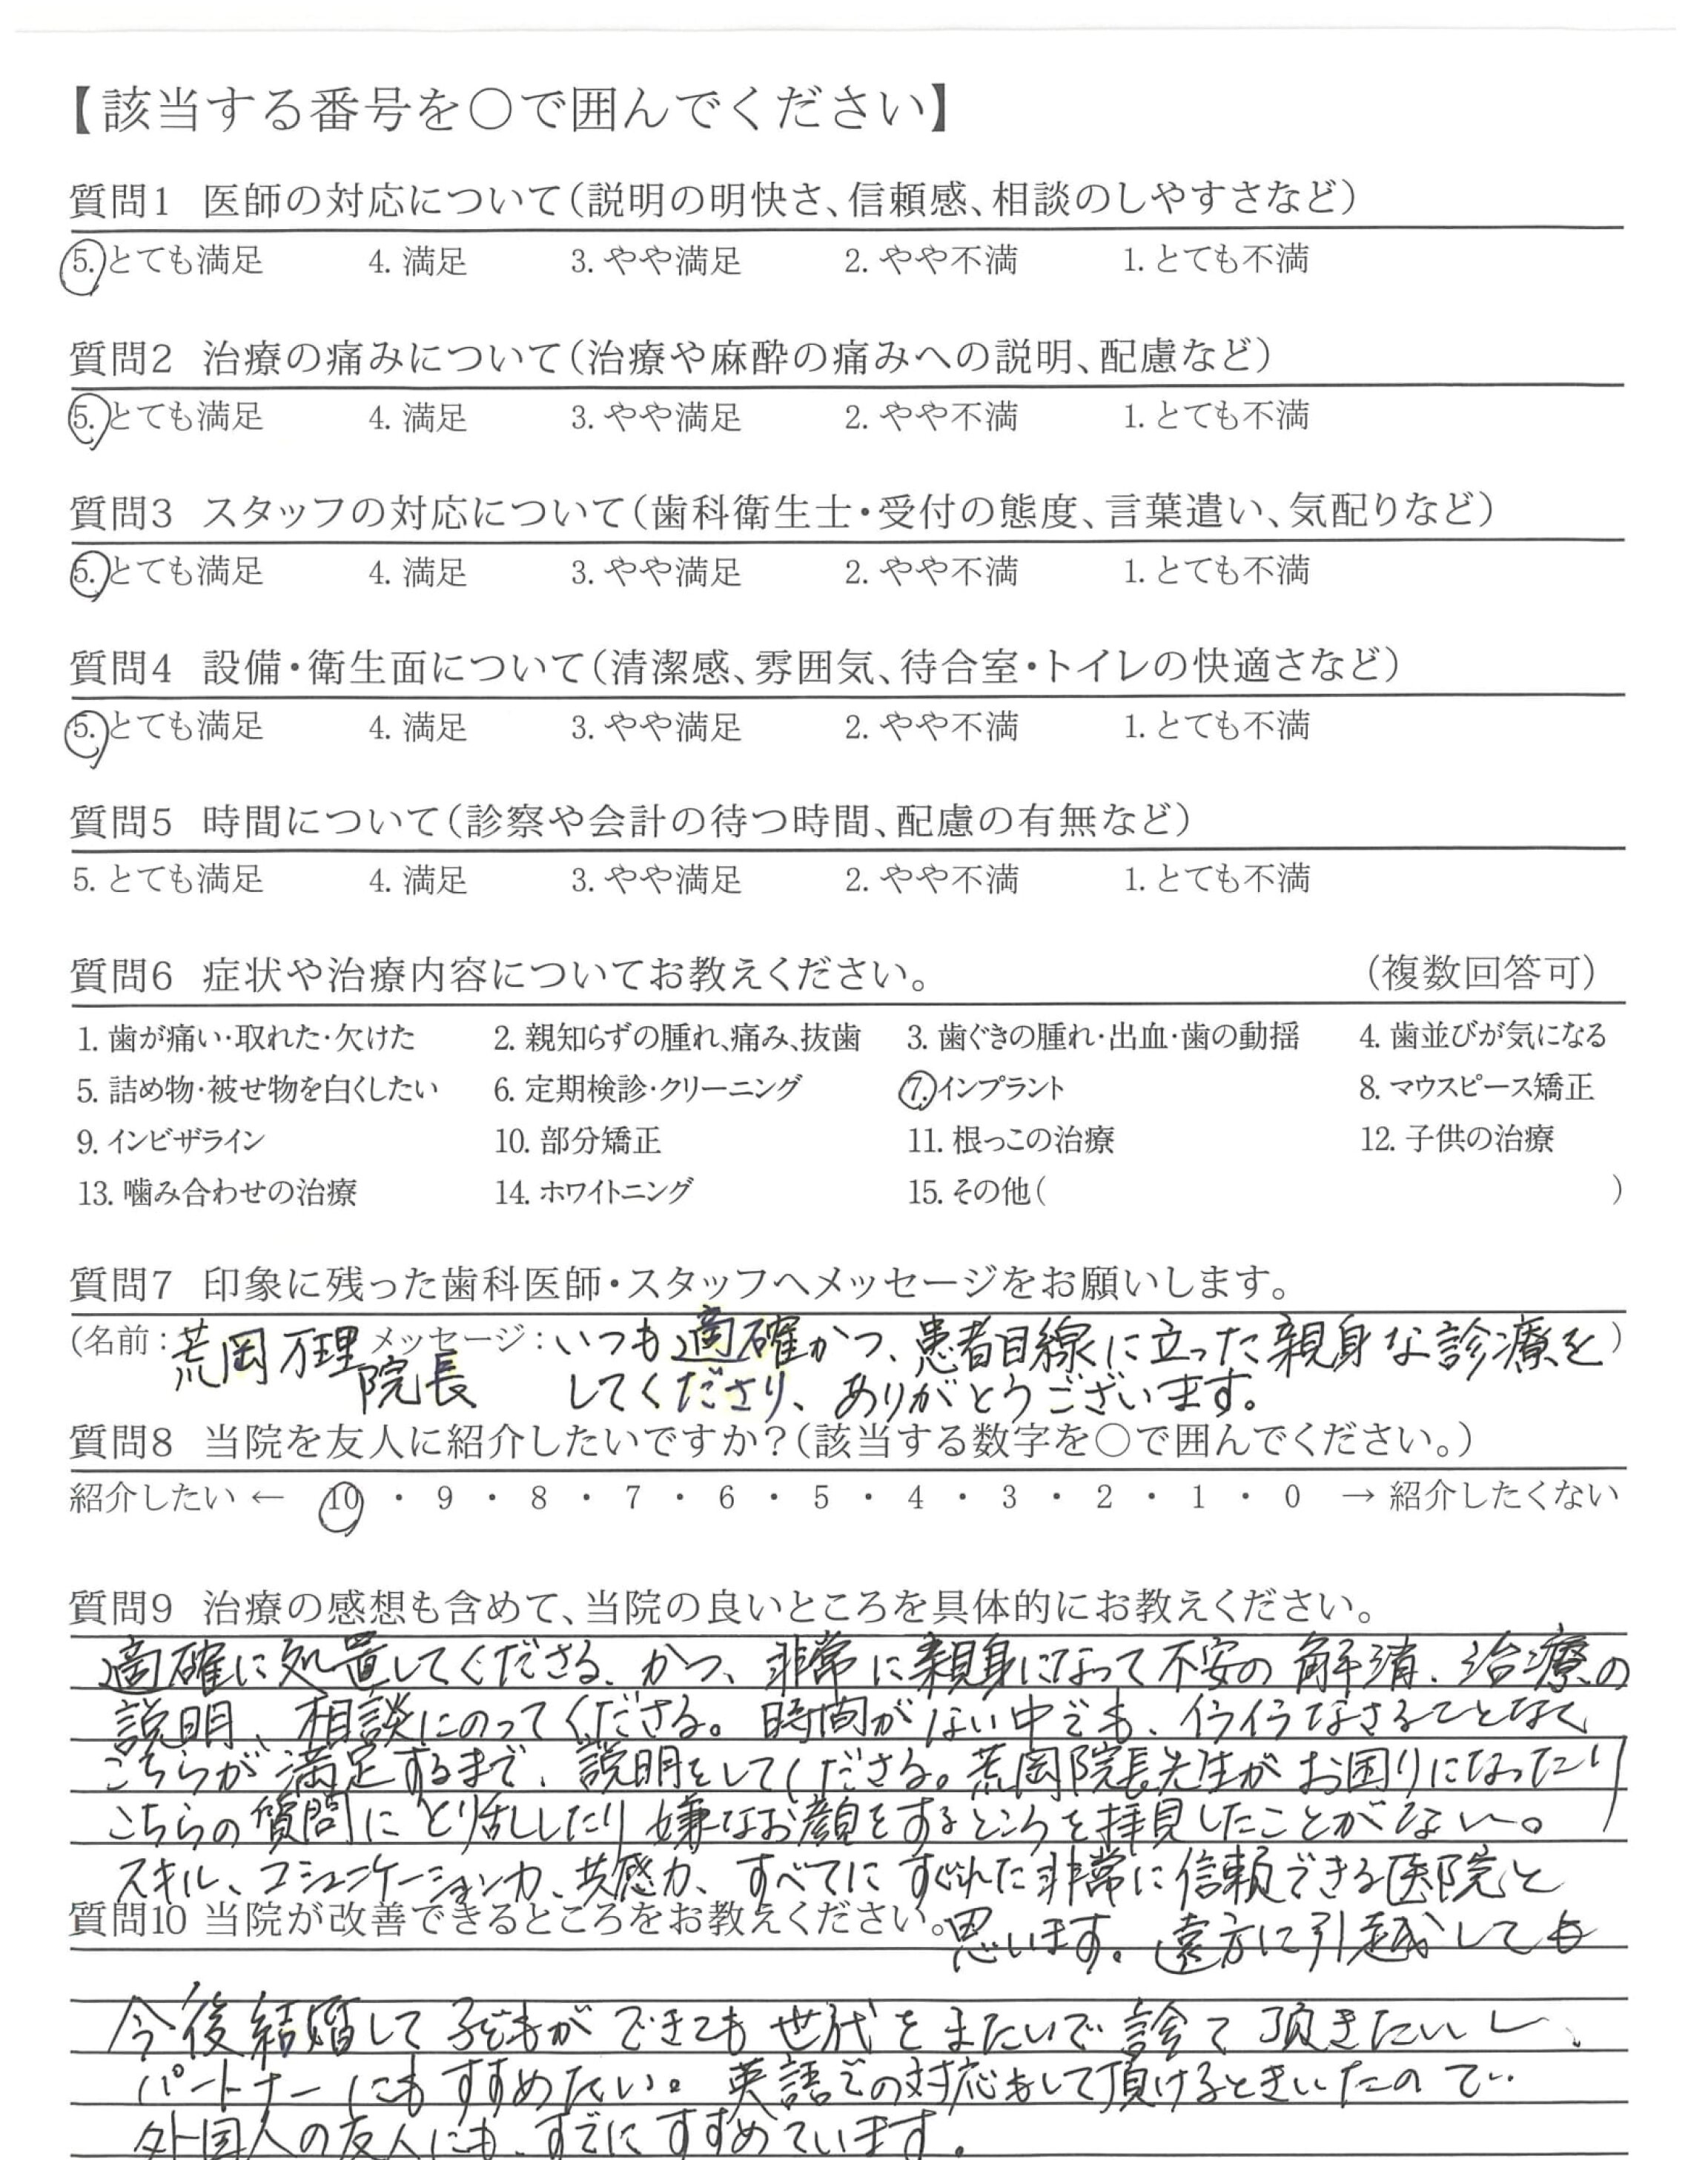 【該当する番号を○で囲んでください】
質問1 医師の対応について(説明の明快さ、信頼感、相談のしやすさなど)
5. とても満足 4. 満足 3. やや満足 2. やや不満 1. とても不満
質問2 治療の痛みについて(治療や麻酔の痛みへの説明、配慮など)
5. とても満足 4. 満足 3. やや満足 2. やや不満 1. とても不満
質問3 スタッフの対応について(歯科衛生士・受付の態度、言葉遣い、気配りなど)
5. とても満足 4. 満足 3. やや満足 2. やや不満 1. とても不満
質問4 設備・衛生面について(清潔感、雰囲気、待合室・トイレの快適さなど)
5. とても満足 4. 満足 3. やや満足 2. やや不満 1. とても不満
質問5 時間について(診察や会計の待つ時間、配慮の有無など)
5. とても満足 4. 満足 3. やや満足 2. やや不満 1. とても不満
質問6 症状や治療内容についてお教えください。 (複数回答可)
1. 歯が痛い・取れた・欠けた 2. 親知らずの腫れ、痛み、抜歯 3. 歯ぐきの腫れ・出血・歯の動揺 4. 歯並びが気になる
5. 詰め物・被せ物を白くしたい 6. 定期検診・クリーニング 7. インプラント 8. マウスピース矯正
9. インビザライン 10. 部分矯正 11. 根っこの治療 12. 子供の治療
13. 噛み合わせの治療 14. ホワイトニング 15. その他( )
質問7 印象に残った歯科医師・スタッフへメッセージをお願いします。
(名前:荒岡万理 メッセージ:いつも適確かつ、患者目線に立った親身な診療を)
院長 してくださり、ありがとうございます。
質問8 当院を友人に紹介したいですか?(該当する数字を○で囲んでください。)
紹介したい ← 10 ・ 9 ・ 8 ・ 7 ・ 6 ・ 5 ・ 4 ・ 3 ・ 2 ・ 1 ・ 0 → 紹介したくない
質問9 治療の感想も含めて、当院の良いところを具体的にお教えください。
適確に処置してくださる、かつ、非常に親身になって不安の解消、治療の
説明、相談にのってくださる。時間がない中でも、イライラなさることなく
こちらが満足するまで、説明をしてくださる。荒岡院長先生がお困りになったり
こちらの質問にとり乱したり嫌なお顔をするところを拝見したことがない。
スキル、コミュニケーション力、共感力、すべてにすぐれた非常に信頼できる医院と
質問10 当院が改善できるところをお教えください。
思います。遠方に引越しても
今後結婚して子どもができても世代をまたいで診て頂きたいし、
パートナーにもすすめたい。英語での対応もして頂けるときいたので
外国人の友人にも、すでにすすめています。